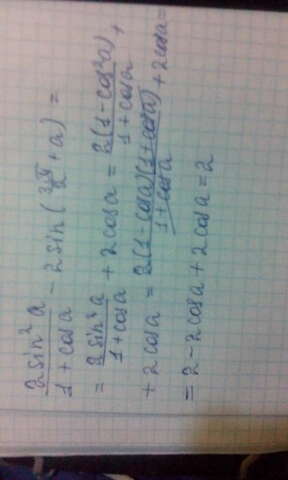 2sin² a / 1 + cosa − 2sin(3π/2 + a) =
= 2sin² a / 1 + cosa + 2cosa = 2(1 - cos²a) / 1 + cosa +
+ 2cosa = 2(1 - cosa)(1 + cosa) / 1 + cosa + 2cosa =
= 2 - 2cosa + 2cosa = 2